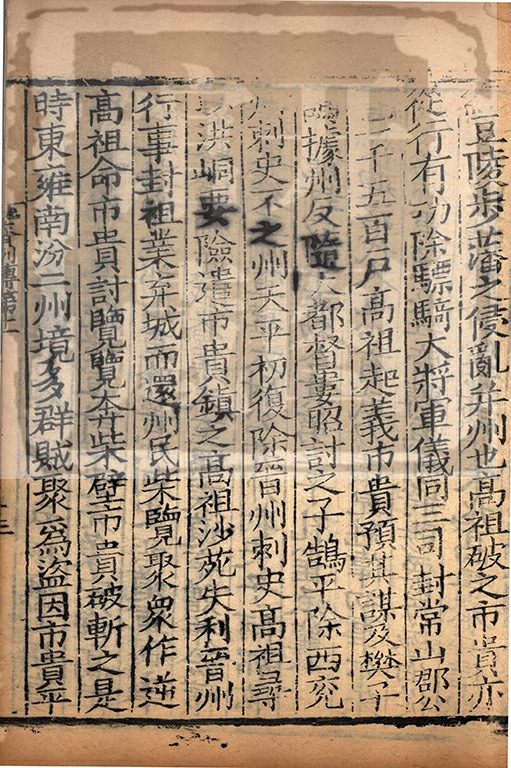 豆陵步藩之侵亂并州也高祖破之市貴亦
從行有功除驃騎大將軍儀同三司封常山郡公
邑一千五百户高祖起義市貴預其謀及樊子
鵠據州反隨大都督婁昭討之子鵠平除西兖
州刺史不之州天平初復除晉州刺史高祖尋
以洪峒要險遣市貴鎮之高祖沙苑失利晉州
行事封祖業弃城而還州民柴覽聚衆作逆
高祖命市貴討覽覽奔柴壁市貴破斬之是
時東雍南汾二州境多群賊聚爲盗因市貴平